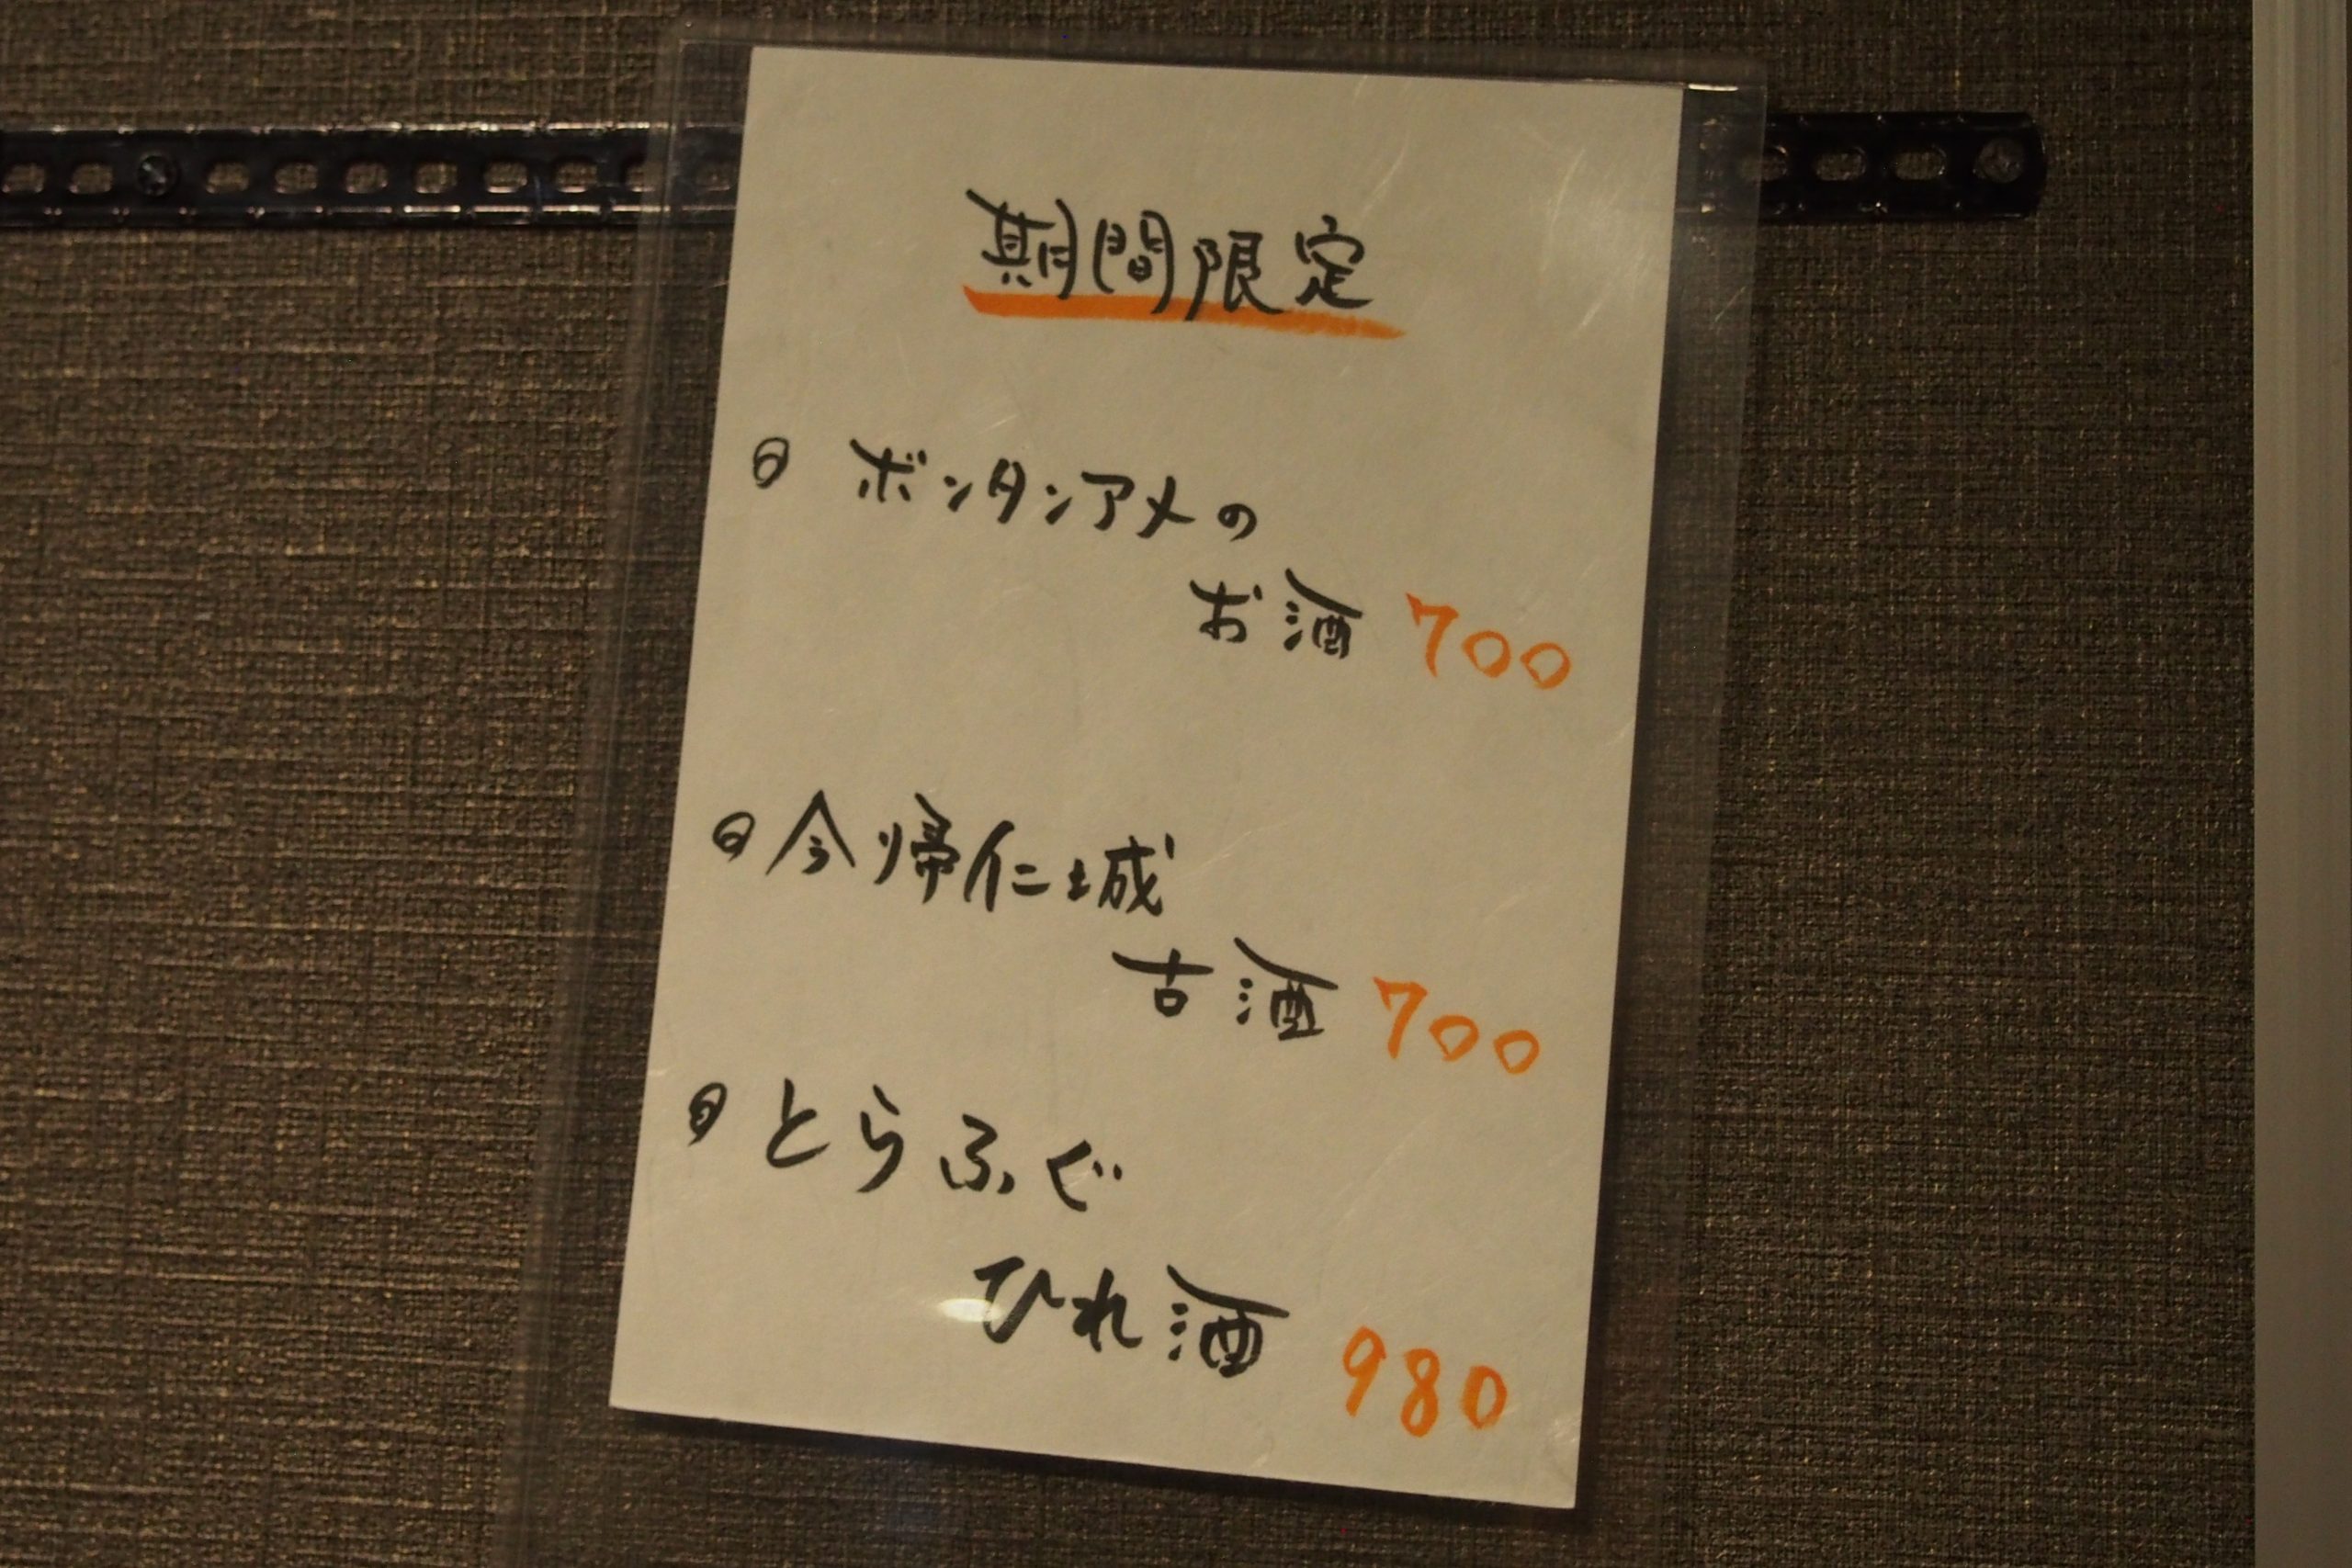 期間限定
ボンタンアメの
お酒 700
今帰仁城
古酒 700
とらふぐ
ひれ酒 980